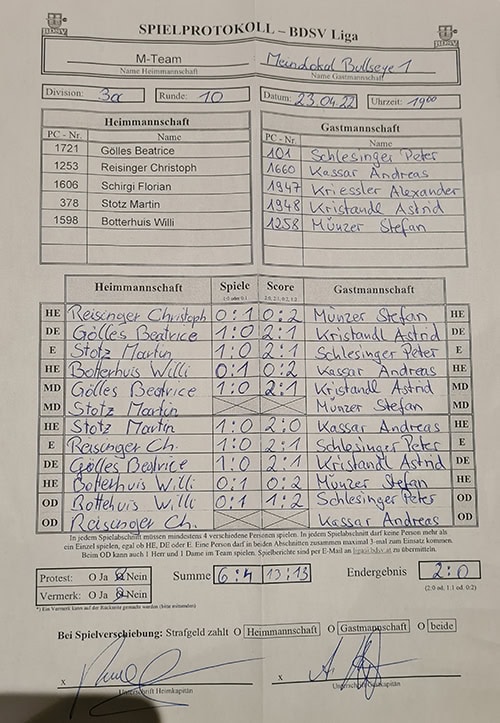 SPIELPROTOKOLL – BDSV Liga
BDSV
BDSV
M-Team Meindlokal Bullseye 1
Name Heimmannschaft Name Gastmannschaft
Division: 3a Runde: 10 Datum: 23.04.22 Uhrzeit: 19:00
Heimmannschaft Gastmannschaft
PC - Nr. Name PC - Nr. Name
1721 Gölles Beatrice 101 Schlesinger Peter
1253 Reisinger Christoph 1660 Kassar Andreas
1606 Schirgi Florian 1947 Kriessler Alexander
378 Stotz Martin 1948 Kristandl Astrid
1598 Botterhuis Willi 1258 Münzer Stefan
Heimmannschaft Spiele Score Gastmannschaft
1:0 oder 0:1 2:0, 2:1, 0:2, 1:2
HE Reisinger Christoph 0:1 0:2 Münzer Stefan HE
DE Gölles Beatrice 1:0 2:1 Kristandl Astrid DE
E Stotz Martin 1:0 2:1 Schlesinger Peter E
HE Botterhuis Willi 0:1 0:2 Kassar Andreas HE
MD Gölles Beatrice 1:0 2:1 Kristandl Astrid MD
MD Stotz Martin Münzer Stefan MD
HE Stotz Martin 1:0 2:0 Kassar Andreas HE
E Reisinger Ch. 1:0 2:1 Schlesinger Peter E
DE Gölles Beatrice 1:0 2:1 Kristandl Astrid DE
HE Botterhuis Willi 0:1 0:2 Münzer Stefan HE
OD Bottehuis Willi 0:1 1:2 Schlesinger Peter OD
OD Reisinger Ch. Kassar Andreas OD
In jedem Spielabschnitt müssen mindestens 4 verschiedene Personen spielen. In jedem Spielabschnitt darf keine Person mehr als
ein Einzel spielen, egal ob HE, DE oder E. Eine Person darf in beiden Abschnitten zusammen maximal 3-mal zum Einsatz kommen.
Beim OD kann auch 1 Herr und 1 Dame im Team spielen. Spielberichte sind per E-Mail an liga@bdsv.at zu übermitteln.
Protest: O Ja O Nein Summe 6:4 13:13 Endergebnis 2:0
Vermerk: O Ja O Nein (2:0 od. 1:1 od. 0:2)
*) Ein Vermerk kann auf der Rückseite gemacht werden (bitte umwenden)
Bei Spielverschiebung: Strafgeld zahlt O Heimmannschaft O Gastmannschaft O beide
x x
Unterschrift Heimkapitän Unterschrift Gastkapitän